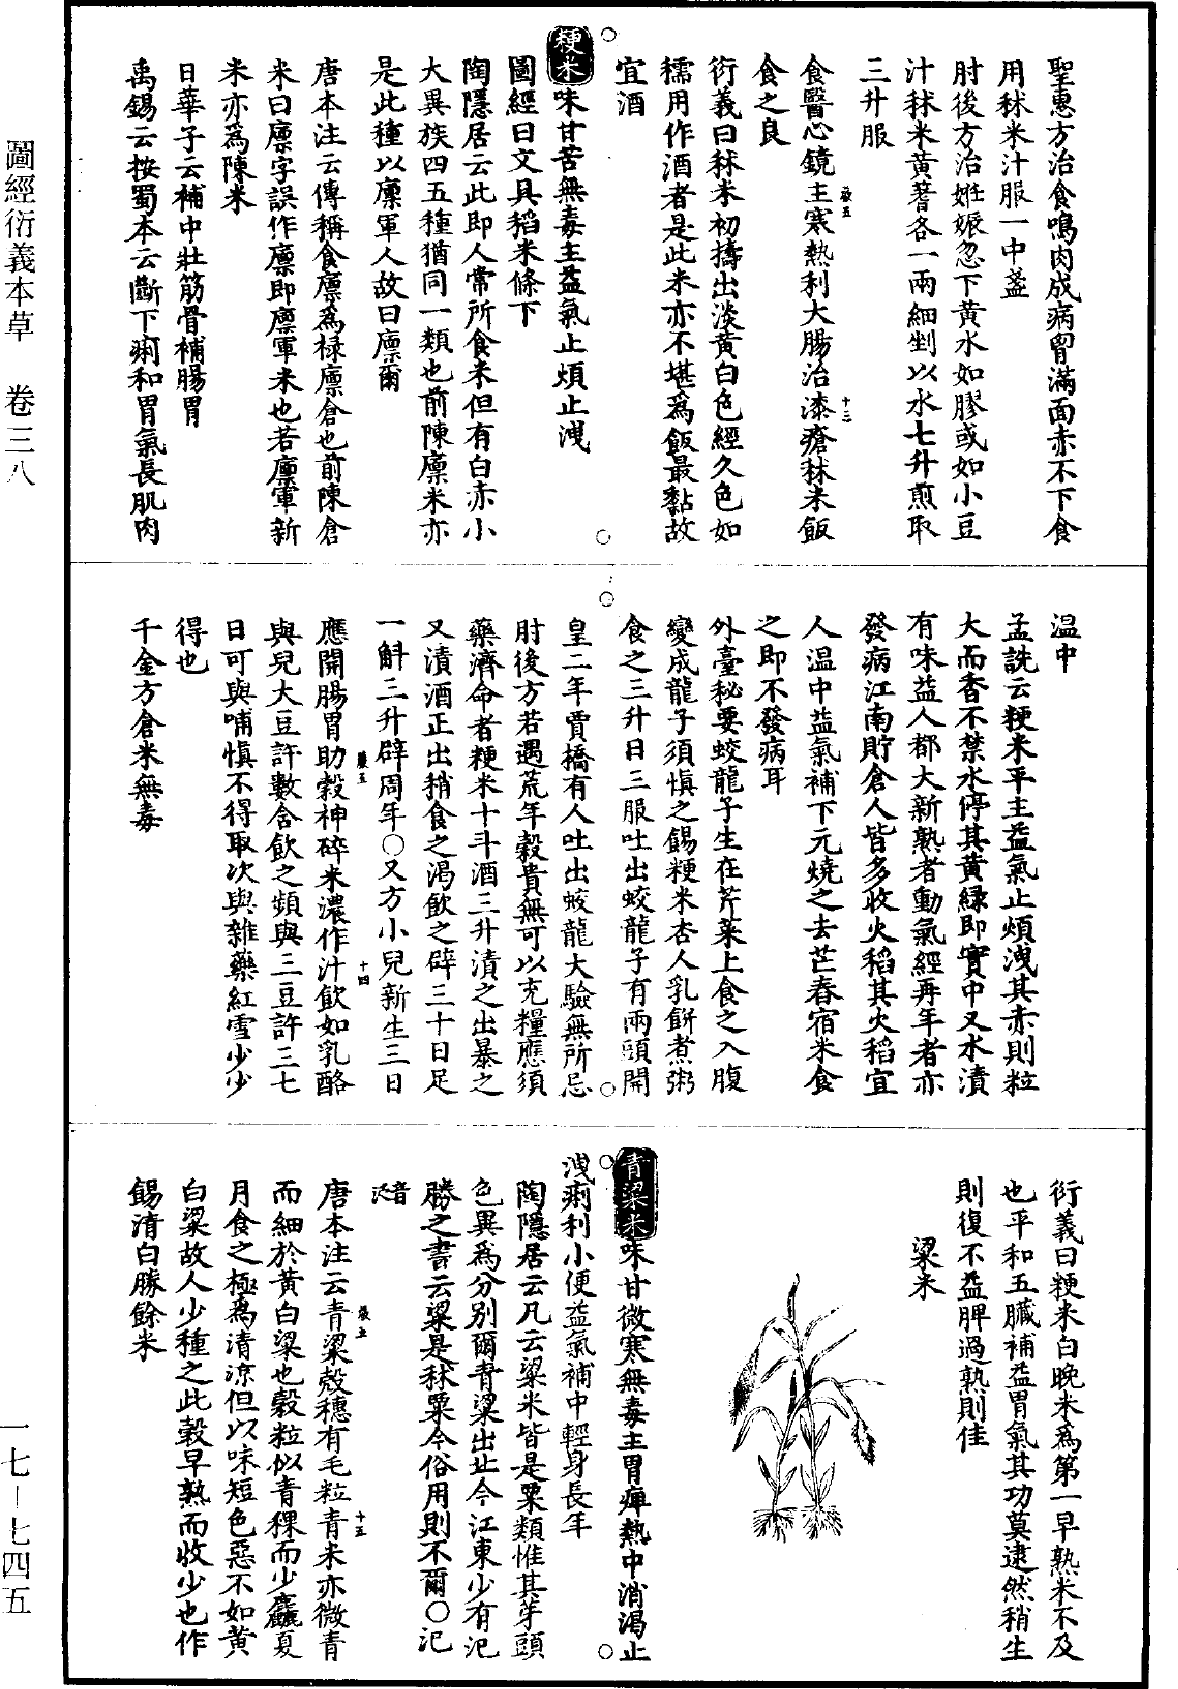 圖經衍義本草　卷三八
聖惠方治食鴨肉成病胷滿面赤不下食
用秫米汁服一中盞
肘後方治姙娠忽下黄水如膠或如小豆
汁秫米黄蓍各一兩細剉以水七升煎取
三升服
食醫心鏡主寒熱利大腸治漆瘡秫米飯
食之良
衍義曰秫米初擣出淡黄白色經久色如
糯用作酒者是此米亦不堪爲飯最黏故
宜酒
粳米味甘苦無毒主益氣止煩止洩
圖經曰文具稻米條下
陶隱居云此即人常所食米但有白赤小
大異族四五種猶同一類也前陳廪米亦
是此種以廪軍人故曰廪爾
唐本注云傳稱食廪爲禄廪倉也前陳倉
米曰廪字誤作廪即廪軍米也若廪軍新
米亦爲陳米
日華子云補中壯筋骨補腸胃
禹錫云按蜀本云斷下痢和胃氣長肌肉
温中
孟詵云粳米平主益氣止煩洩其赤則粒
大而香不禁水停其黄緑即實中又水漬
有味益人都大新熟者動氣經再年者亦
發病江南貯倉人皆多收火稻其火稻宜
人温中益氣補下元燒之去芒舂宿米食
之即不發病耳
外臺秘要蛟龍子生在芹菜上食之入腹
變成龍子須慎之餳粳米杏人乳餅煮粥
食之三升日三服吐出蛟龍子有兩頭開
皇二年賈橋有人吐出蛟龍大驗無所忌
肘後方若遇荒年穀貴無可以充糧應須
藥濟命者粳米十斗酒三升漬之出暴之
又漬酒正出稍食之渴飲之辟三十日足
一斛三升辟周年○又方小兒新生三日
應開腸胃助穀神碎米濃作汁飲如乳酪
與兒大豆許數含飲之頻與三豆許三七
日可與哺慎不得取次與雜藥紅雪少少
得也
千金方倉米無毒
衍義曰粳米白晚米爲第一早熟米不及
也平和五臟補益胃氣其功莫逮然稍生
則復不益脾過熟則佳
粱米
青粱米味甘微寒無毒主胃痺熱中消渴止
洩痢利小便益氣補中輕身長年
陶隱居云凡云粱米皆是粟類惟其芽頭
色異爲分别爾青粱出北今江東少有氾
勝之書云粱是秫粟今俗用則不爾○氾
音
唐本注云青粱殼穗有毛粒青米亦微青
而細於黄白粱也穀粒似青稞而少麤夏
月食之極爲清涼但以味短色惡不如黄
白粱故人少種之此穀早熟而收少也作
餳清白勝餘米
一七—七四五